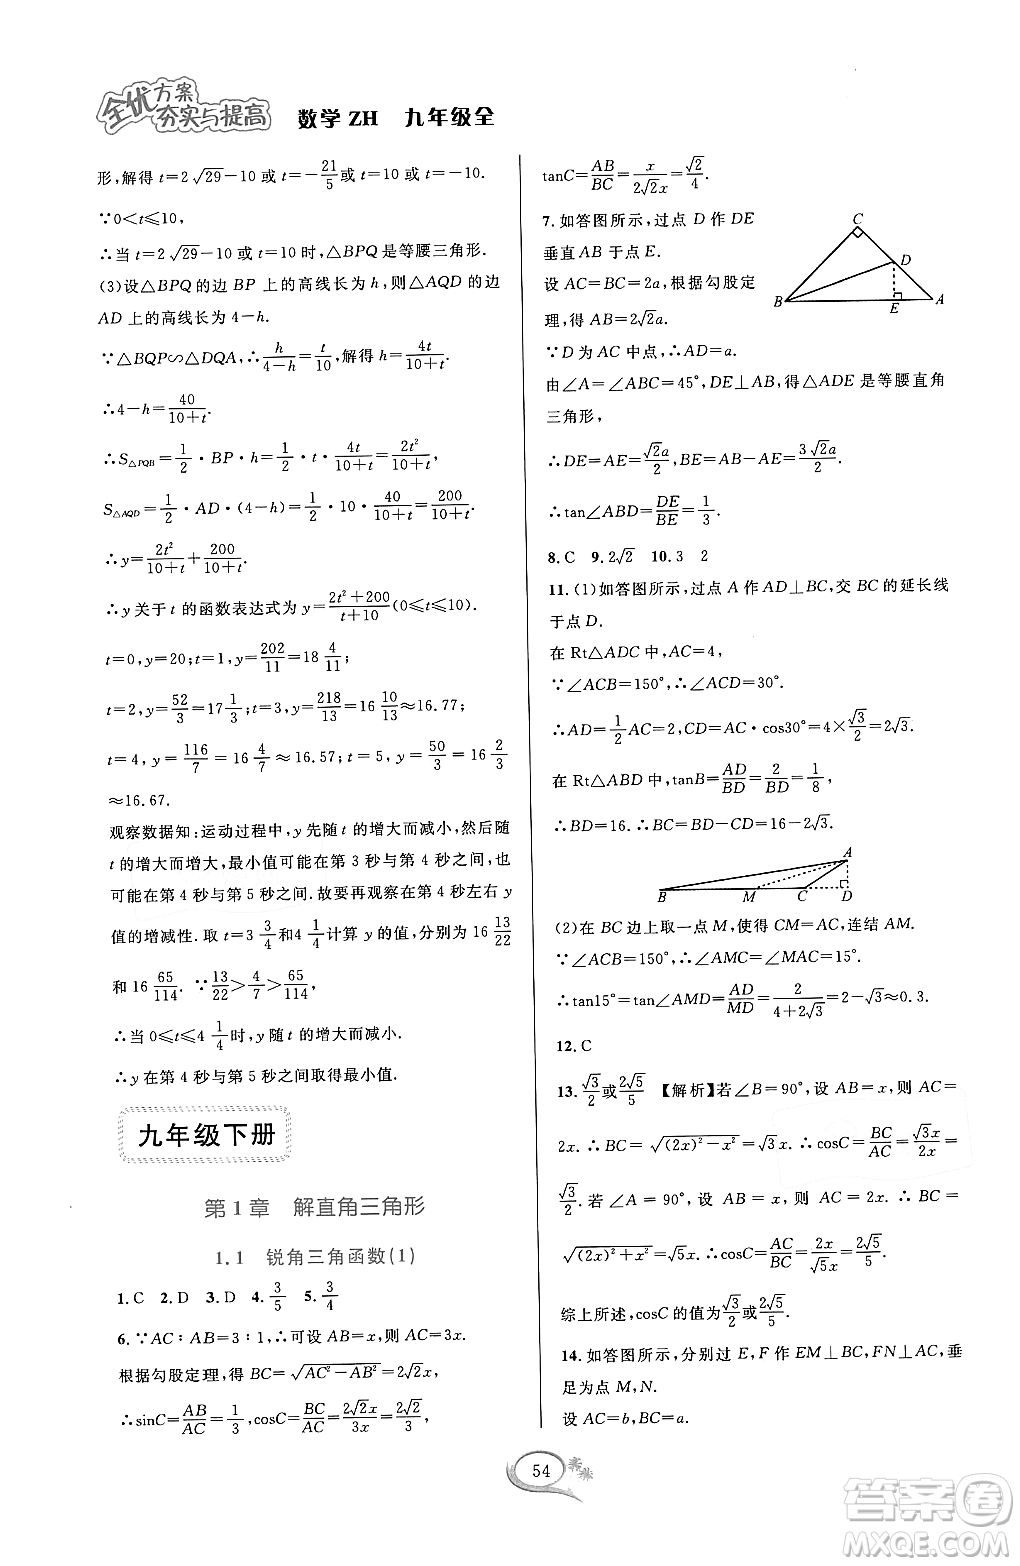 全优方案
夯实与提高 数学 ZH 九年级全
形,解得 t=2√29-10 或 t=-21/5 或 t=10 或 t=-10.
∵0<t≤10,
∴当 t=2√29-10 或 t=10 时,△BPQ 是等腰三角形.
(3)设△BPQ 的边 BP 上的高线长为 h,则△AQD 的边
AD 上的高线长为 4-h.
∵△BQP∽△DQA,∴h/(4-h)=t/10,解得 h=4t/(10+t).
∴4-h=40/(10+t).
∴S△PQB=1/2·BP·h=1/2·t·4t/(10+t)=2t²/(10+t),
S△AQD=1/2·AD·(4-h)=1/2·10·40/(10+t)=200/(10+t).
∴y=2t²/(10+t)+200/(10+t).
∴y 关于 t 的函数表达式为 y=(2t²+200)/(t+10)(0≤t≤10).
t=0,y=20;t=1,y=202/11=18 4/11;
t=2,y=52/3=17 1/3;t=3,y=218/13=16 10/13≈16.77;
t=4,y=116/7=16 4/7≈16.57;t=5,y=50/3=16 2/3
≈16.67.
观察数据知:运动过程中,y 先随 t 的增大而减小,然后随
t 的增大而增大,最小值可能在第 3 秒与第 4 秒之间,也
可能在第 4 秒与第 5 秒之间.故要再观察在第 4 秒左右 y
值的增减性.取 t=3 3/4 和 4 1/4 计算 y 的值,分别为 16 13/22
和 16 65/114.∵13/22>4/7>65/114,
∴当 0≤t≤4 1/4 时,y 随 t 的增大而减小.
∴y 在第 4 秒与第 5 秒之间取得最小值.
九年级下册
第 1 章 解直角三角形
1.1 锐角三角函数(1)
1.C 2.D 3.D 4.3/5 5.3/4
6.∵AC∶AB=3∶1,∴可设 AB=x,则 AC=3x.
根据勾股定理,得 BC=√(AC²-AB²)=2√2x.
∴sinC=AB/AC=1/3,cosC=BC/AC=2√2x/3x=2√2/3,
tanC=AB/BC=x/2√2x=√2/4.
7.如答图所示,过点 D 作 DE
垂直 AB 于点 E.
设 AC=BC=2a,根据勾股定
理,得 AB=2√2a.
∵D 为 AC 中点,∴AD=a.
C
D
B
E
A
由∠A=∠ABC=45°,DE⊥AB,得△ADE 是等腰直角
三角形,
∴DE=AE=√2a/2,BE=AB-AE=3√2a/2.
∴tan∠ABD=DE/BE=1/3.
8.C 9.2√2 10.3 2
11.(1)如答图所示,过点 A 作 AD⊥BC,交 BC 的延长线
于点 D.
在 Rt△ADC 中,AC=4,
∵∠ACB=150°,∴∠ACD=30°.
∴AD=1/2AC=2,CD=AC·cos30°=4×√3/2=2√3.
在 Rt△ABD 中,tanB=AD/BD=2/BD=1/8,
∴BD=16.∴BC=BD-CD=16-2√3.
A
B M C D
(2)在 BC 边上取一点 M,使得 CM=AC,连结 AM.
∵∠ACB=150°,∴∠AMC=∠MAC=15°.
∴tan15°=tan∠AMD=AD/MD=2/(4+2√3)=2-√3≈0.3.
12.C
13.√3/2或2√5/5 【解析】若∠B=90°,设 AB=x,则 AC=
2x.∴BC=√((2x)²-x²)=√3x.∴cosC=BC/AC=√3x/2x=
√3/2.若∠A=90°,设 AB=x,则 AC=2x.∴BC=
√((2x)²+x²)=√5x.∴cosC=AC/BC=2x/√5x=2√5/5.
综上所述,cosC 的值为√3/2或2√5/5.
14.如答图所示,分别过 E,F 作 EM⊥BC,FN⊥AC,垂
足为点 M,N.
设 AC=b,BC=a.
54
答案圈
MXQE.COM